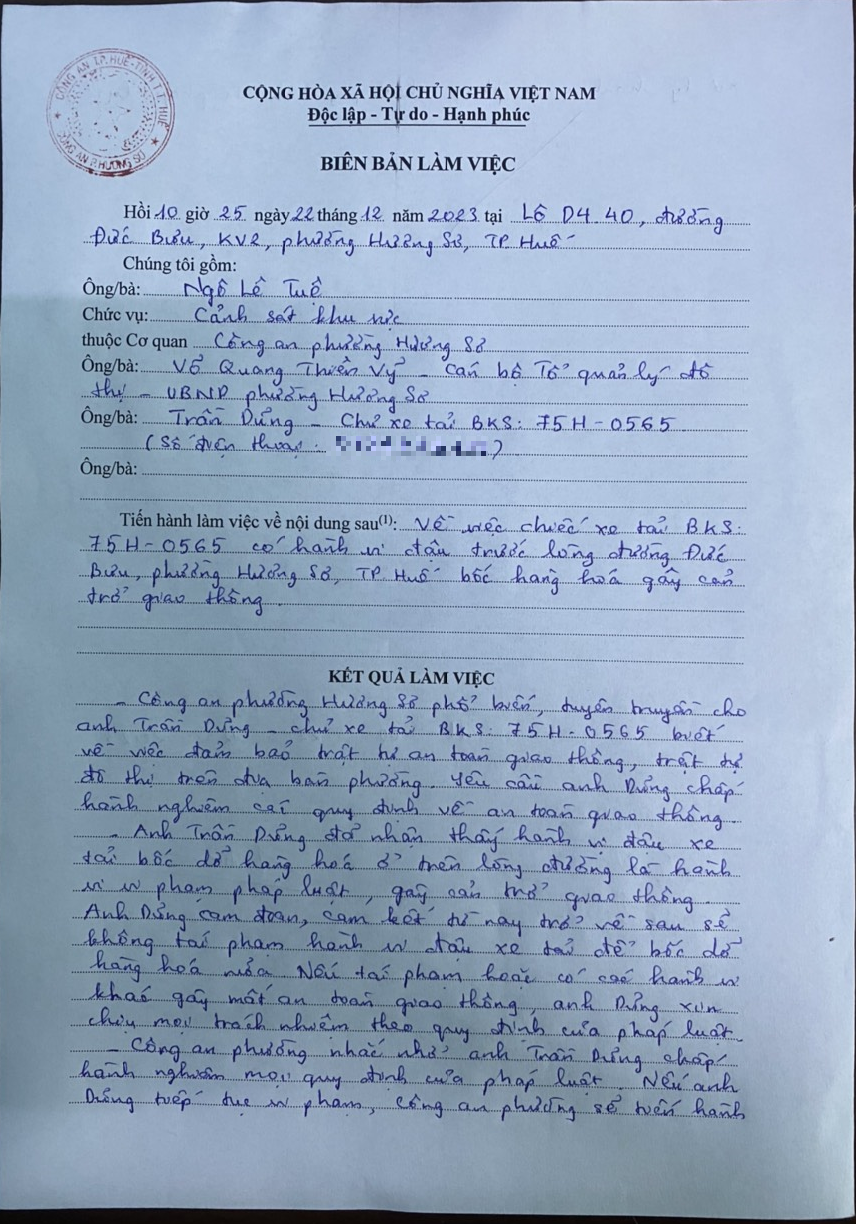 CÔNG AN TP. HUẾ - TỈNH T.T. HUẾ
CÔNG AN P. HƯƠNG SƠ
CỘNG HÒA XÃ HỘI CHỦ NGHĨA VIỆT NAM
Độc lập - Tự do - Hạnh phúc
BIÊN BẢN LÀM VIỆC
Hồi 10 giờ 25 ngày 22 tháng 12 năm 2023 tại Lô D4 40, đường
Đức Bưu, KV2, phường Hương Sơ, TP. Huế
Chúng tôi gồm:
Ông/bà: Ngô Lê Tuệ
Chức vụ: Cảnh sát khu vực
thuộc Cơ quan Công an phường Hương Sơ
Ông/bà: Võ Quang Thiên Vỹ - Cán bộ Tổ quản lý đô
thị - UBND phường Hương Sơ
Ông/bà: Trần Dũng - Chủ xe tải BKS: 75H-0565
(Số điện thoại: )
Ông/bà:
Tiến hành làm việc về nội dung sau(1): Về việc chiếc xe tải BKS:
75H-0565 có hành vi đậu trước lòng đường Đức
Bưu, phường Hương Sơ, TP. Huế bốc hàng hoá gây cản
trở giao thông.
KẾT QUẢ LÀM VIỆC
- Công an phường Hương Sơ phổ biến, tuyên truyền cho
anh Trần Dũng - chủ xe tải BKS: 75H-0565 biết
về việc đảm bảo trật tự an toàn giao thông, trật tự
đô thị trên địa bàn phường. Yêu cầu anh Dũng chấp
hành nghiêm các quy định về an toàn giao thông.
- Anh Trần Dũng đã nhận thấy hành vi đậu xe
tải bốc dỡ hàng hoá ở trên lòng đường là hành
vi vi phạm pháp luật, gây cản trở giao thông.
Anh Dũng cam đoan, cam kết từ nay trở về sau sẽ
không tái phạm hành vi đậu xe tải để bốc dỡ
hàng hoá nữa. Nếu tái phạm hoặc có các hành vi
khác gây mất an toàn giao thông, anh Dũng xin
chịu mọi trách nhiệm theo quy định của pháp luật.
- Công an phường nhắc nhở anh Trần Dũng chấp
hành nghiêm mọi quy định của pháp luật. Nếu anh
Dũng tiếp tục vi phạm, Công an phường sẽ tiến hành